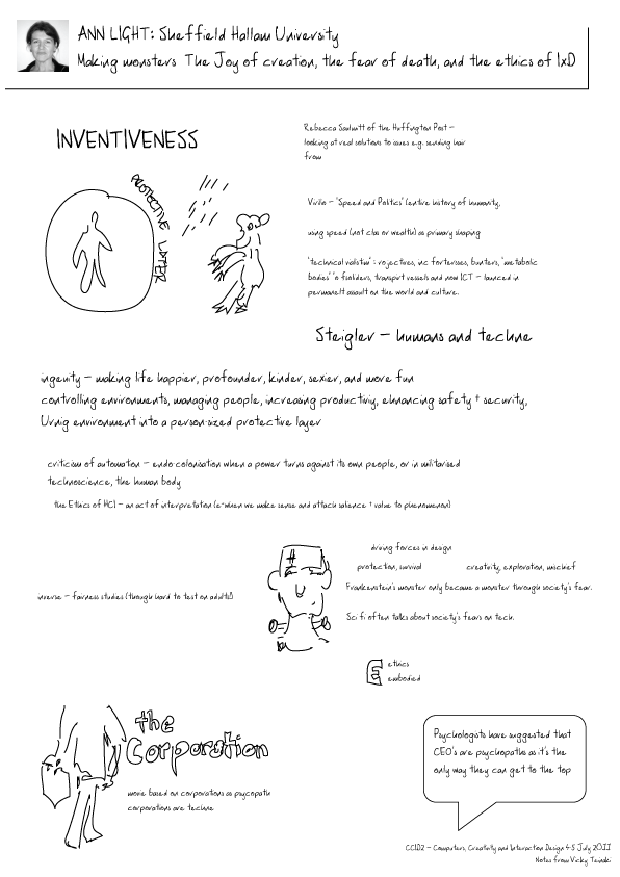 ANN LIGHT: Sheffield Hallam University
Making monsters The Joy of creation, the fear of death, and the ethics of IxD
INVENTIVENESS
PROTECTIVE LAYER
Rebecca of the Huffington Post –
looking at real solutions to issues e.g. sending hair
from
Virilio – 'Speed and Politics' (entire history of humanity,
using speed (not class or wealth) as primary shaping
'technical vialistm' = vejectives, inc fortresses, bunkers, 'metabolic
bodies' o fsoliders, transport vessels and now ICT – launced in
permanent assault on the world and culture.
Steigler – humans and techne
ingenuity – making life happier, profounder, kinder, sexier, and more fun
controlling environments, managing people, increasing productiviy, ehnancing safety + security,
Urnig environment into a person-sized protective llayer
criticism of automation – endo-colonisation when a power turns against its own people, or in militarised
technoscience, the human body
the Ethics of HCI = an act of interpretation (e=when we make sense and attach salience + value to phenomenon)
driving fierces in design
protection, survival
creativity, exploration, mischief
Frankenstein's monster only became a monster through society's fear.
inverse – fairness studies (though hard to test on adults!)
Sci fi often talks about society's fears on tech.
E ethics
embodied
the
Corporation
movie based on corporations as psycopath
corporations are techne
Psychologists have suggested that
CEO's are psychopaths as it's the
only way they can get to the top
CCID2 – Computers, Creativity and Interaction Design 4-5 July 2011
Notes from Vicky Teinaki